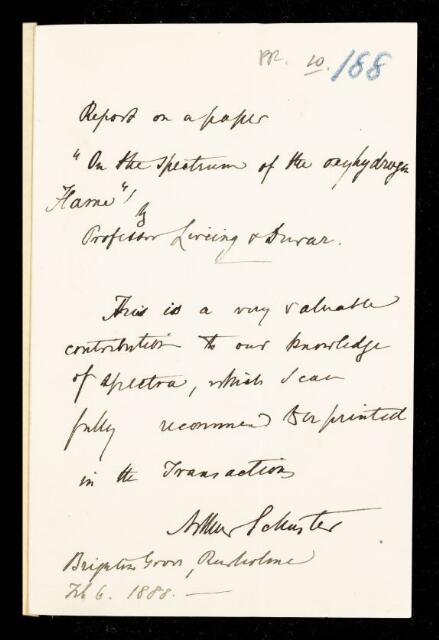 RR. 10. 188
Report on a paper
"On the Spectrum of the oxyhydrogen
Flame"
by
Professor Liveing & Dewar.
This is a very valuable
contribution to our knowledge
of spectra, which I can
fully recommend to be printed
in the Transactions
Arthur Schuster
Brighton Grove, Rusholme
Feb 6. 1888. —